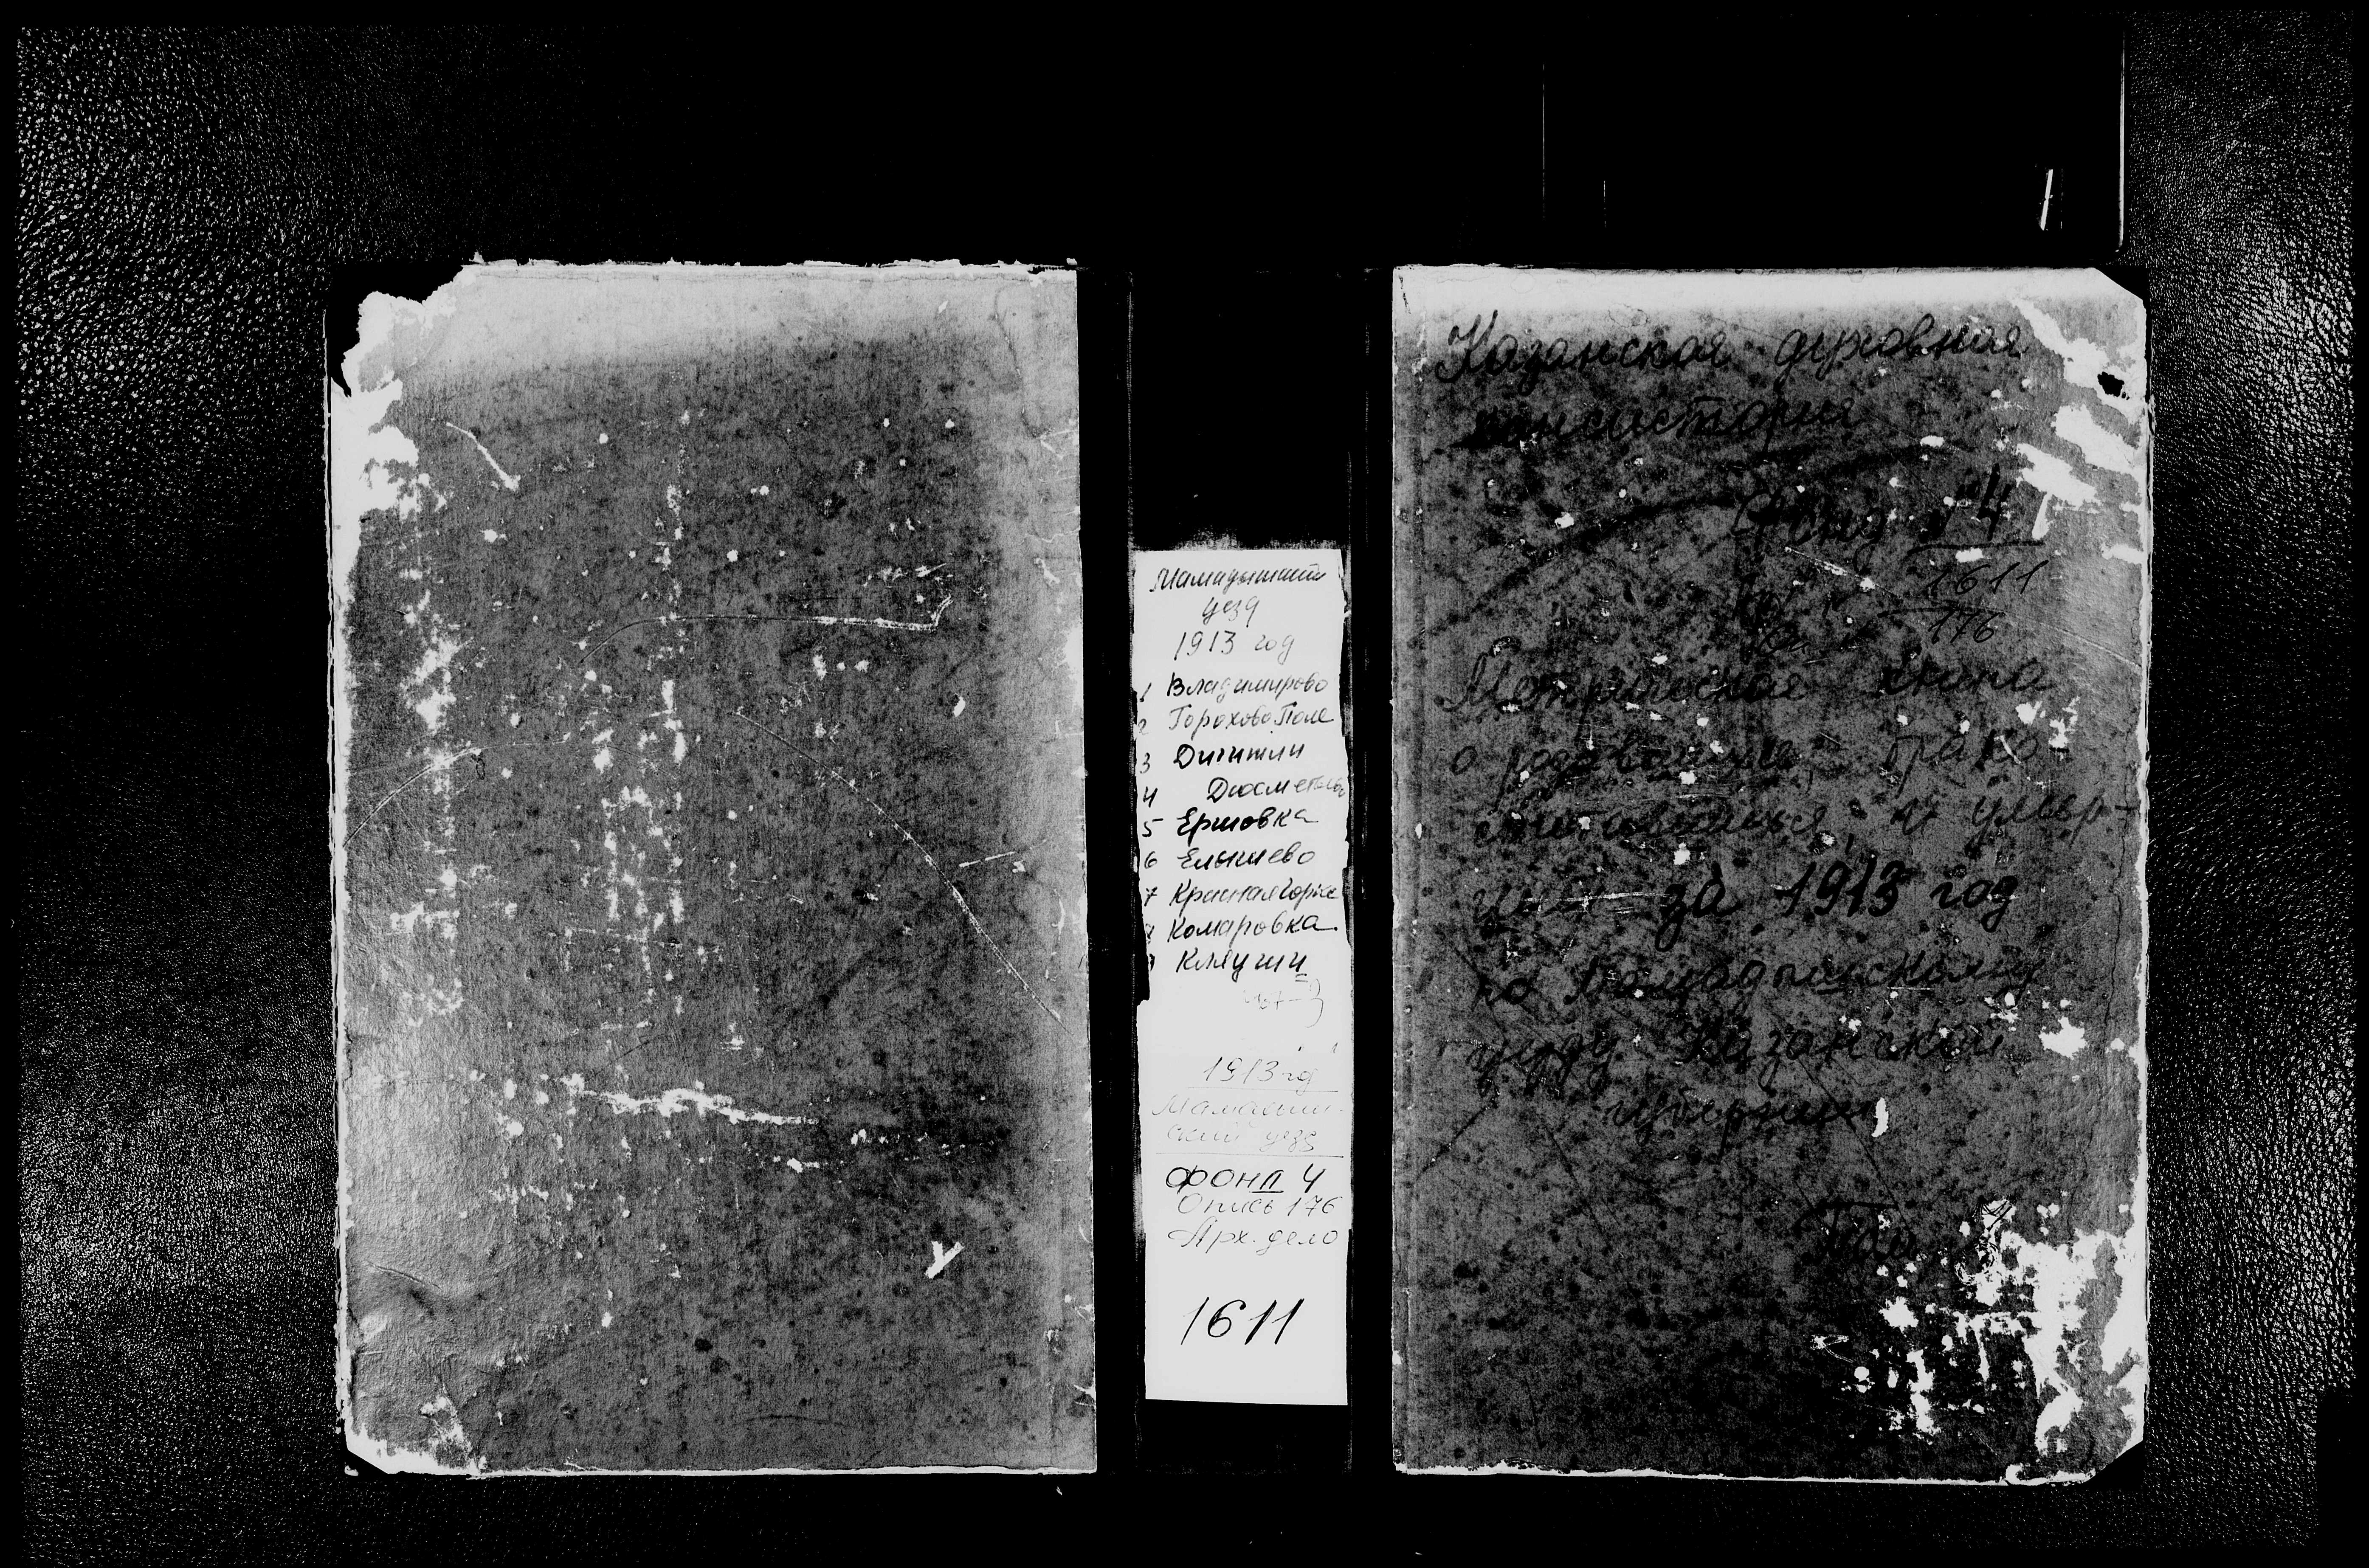 Мамадышский
уезд
1913 год
1 Владимирово
2 Горохово Поле
3 Дигитли
4 Дюсметьево
5 Ершовка
6 Елышево
7 Красная Горка
8 Комаровка
9 Кляуши
1913 год
Мамадыш-
ский уезд
фонд 4
Опись 176
Арх. дело
1611
Казанская духовная
консистория
Фонд № 4
1611
176
Метрическая книга
о родившихся, брако-
сочетавшихся и умер-
ших за 1913 год
по Мамадышскому
уезду Казанской
губернии